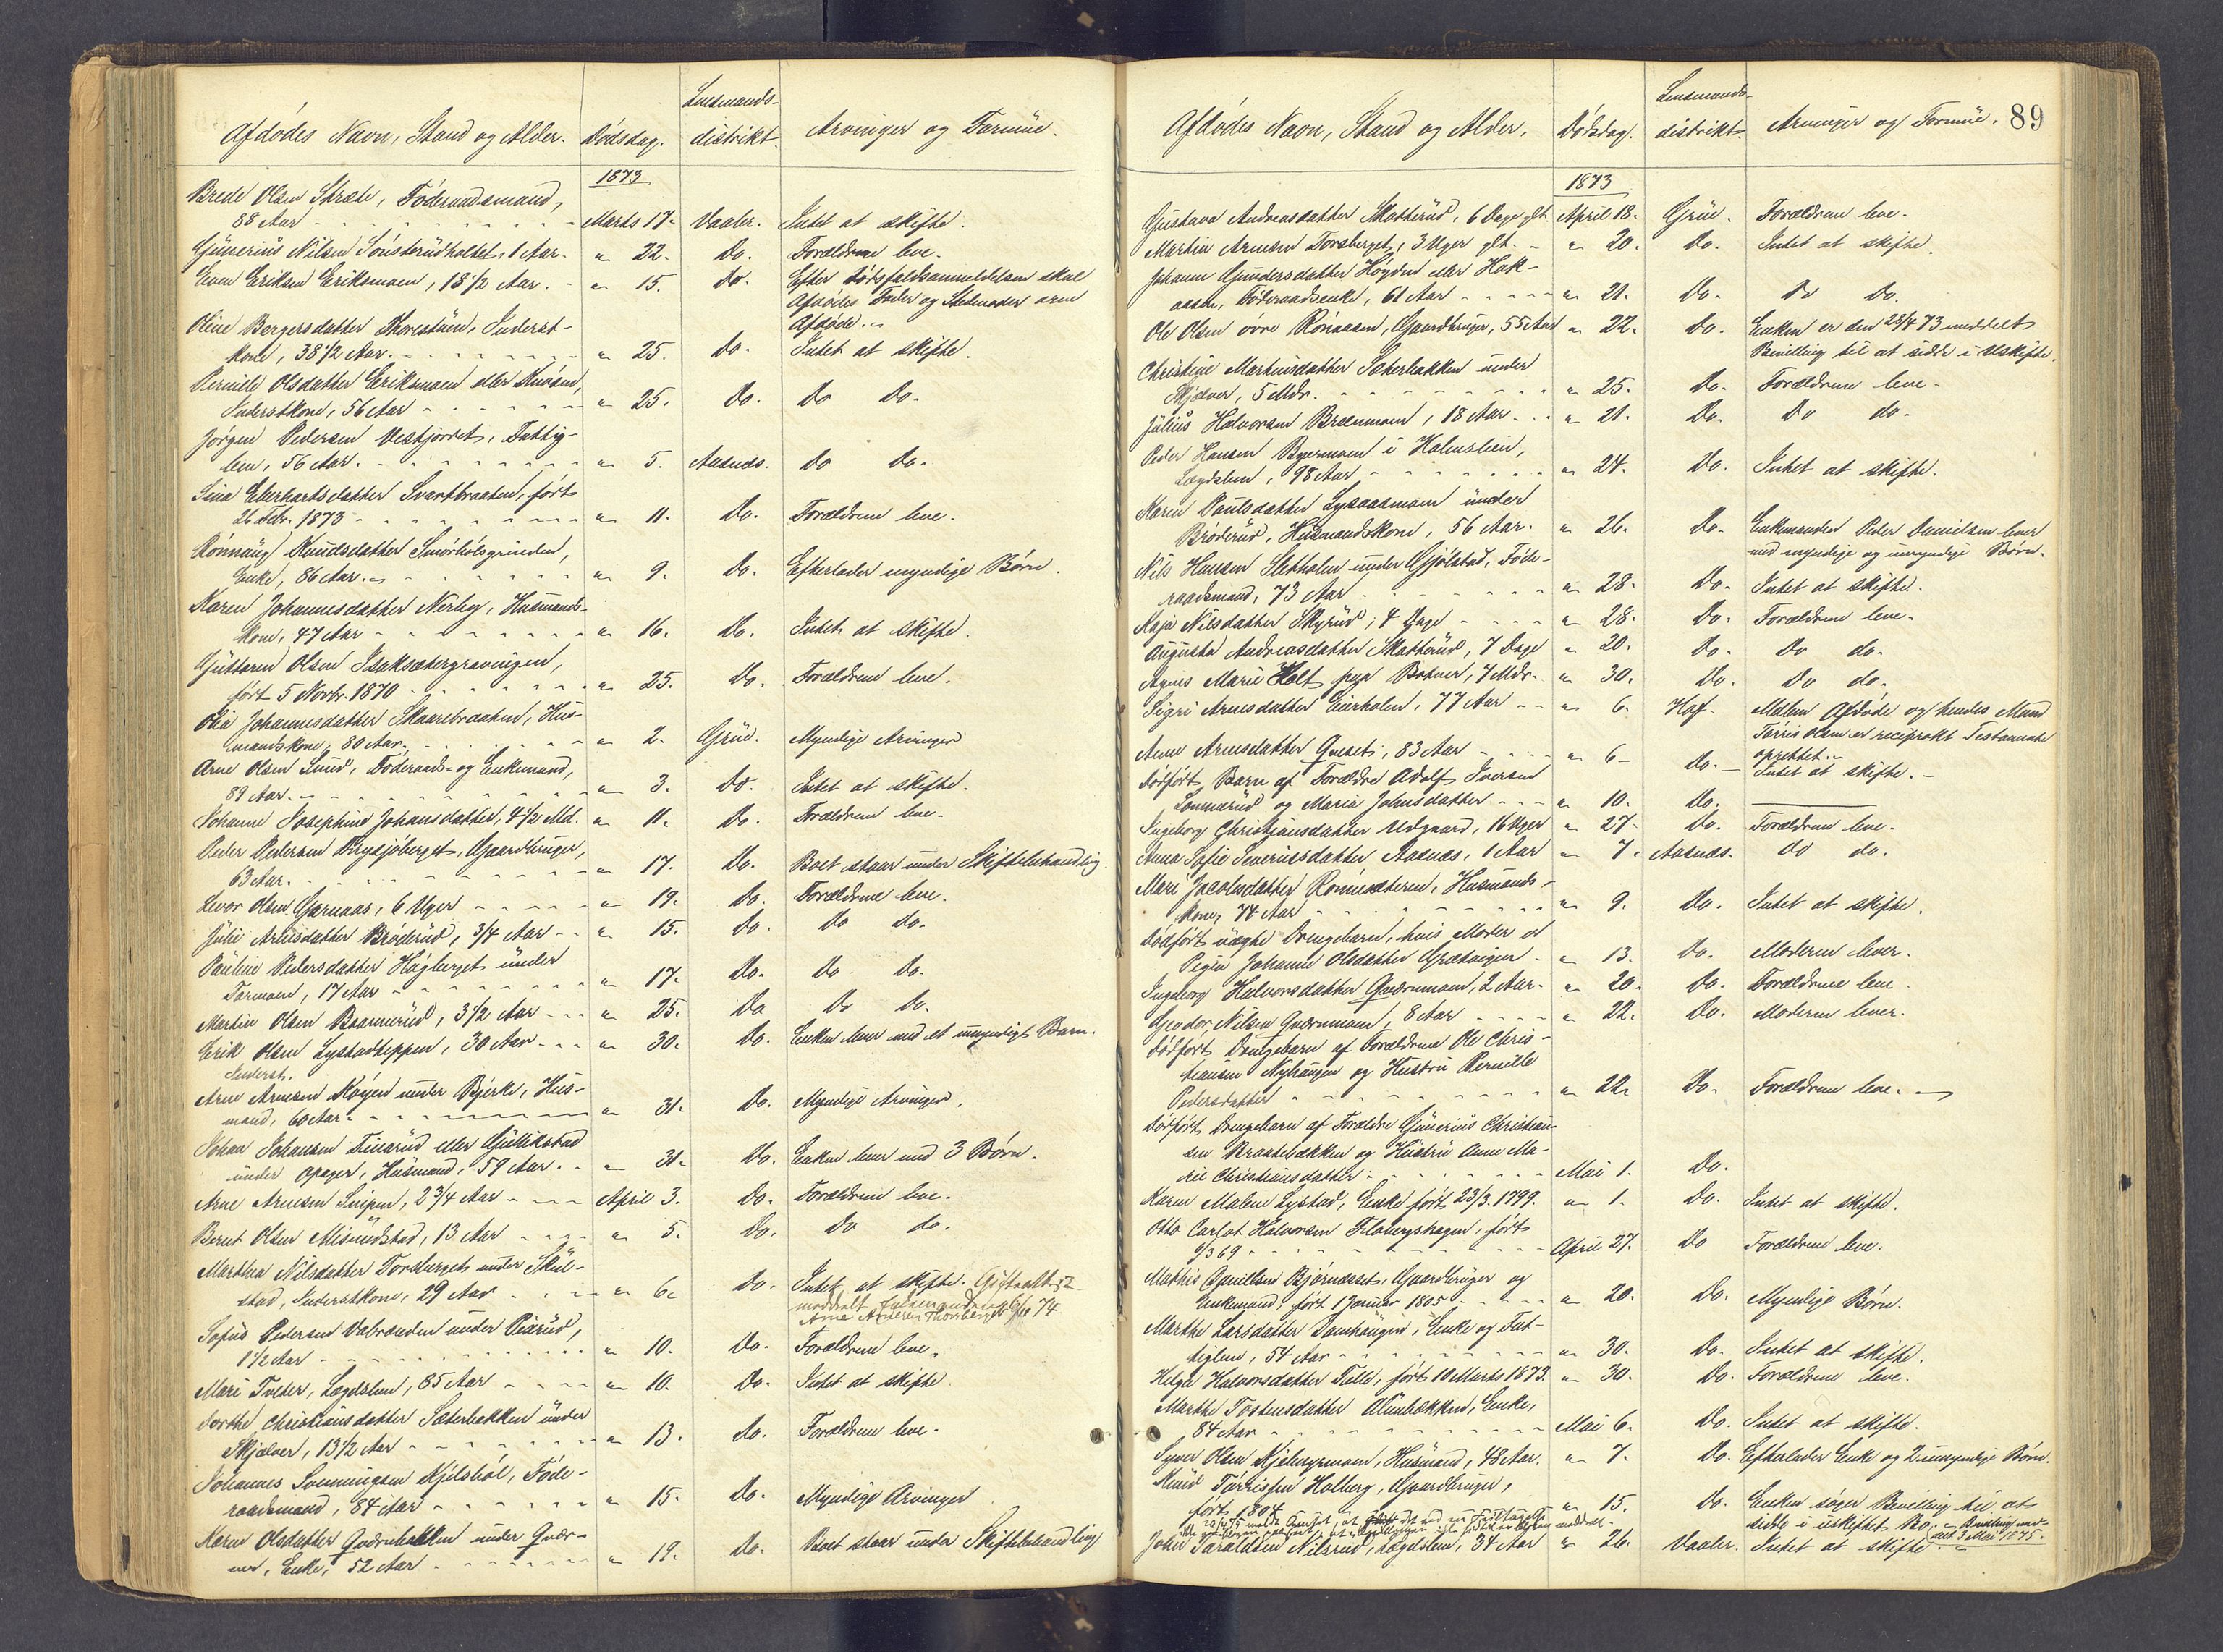 Lensmands-
Afdødes Navn, Stand og Alder. Dødsdag. distrikt. Arvinger og Formue.
1873
Brede Olsen Stræte, Föderaadsmand,
88 Aar - - - Marts 17. Vaaler. Intet at skifte.
Gunerius Nilsen 1 Aar. " 22. Do. Forældrene leve.
Even Eriksen Eriksmoen, 18 1/2 Aar. - " 15. Do. Efter dödsfaldsanmeldelsen skal
Afdödes Fader og Stedmoder arve
Afdöde.
Oline Bergersdatter Inderst-
kone, 38 1/2 Aar. - - - " 25. Do. Intet at skifte.
Pernille Olsdatter Eriksmoen eller
Inderstkone, 56 Aar - - - " 25. Do. Do Do.
Jörgen Pedersen Vestjordet, Fattig-
lem, 56 Aar. - - - " 5. Aasnes. Do Do.
Sina Eberhartsdatter Svartbraaten, född
26 Febr. 1873 - - - " 11. Do. Forældrene leve.
Rönnaug Knudsdatter
Enke, 86 Aar. - - - " 9. Do. Efterlader myndige Börn.
Karen Johannesdatter Nerby, Husmands-
kone, 47 Aar - - - " 16. Do. Intet at skifte.
Guttorm Olsen Isaksætergravingen,
född 5 Novbr. 1870 - - - " 25. Do. Forældrene leve.
Olia Johannesdatter Skaarebraaten, Hus-
mandskone, 80 Aar. - - - " 2. Grue. Myndige Arvinger
Arne Olsen Lund, Föderaads- og Enkemand,
89 Aar. - - - " 3. Do. Intet at skifte.
Johanne Josephine Johansdatter, 4 1/2 Md. " 11. Do. Forældrene leve.
Peder Pedersen Frysjöberget, Gaardbruger,
63 Aar. - - - " 17. Do. Boet staar under Skiftebehandling.
Levor Olsen Garnaas, 6 Uger - - - " 19. Do. Forældrene leve.
Julie Arnesdatter Bröderud, 3/4 Aar - - " 15. Do. Do do.
Pauline Pedersdatter Högberget under
17 Aar - - - " 17. Do. Do Do.
Martin Olsen 3 1/2 Aar - - " 25. Do Do Do.
Erik Olsen Lystadteppen, 30 Aar - - - " 30. Do. Enken lever med et umyndigt Barn.
Inderst.
Arne Arnesen Möyen under Bjerke, Hus-
mand, 60 Aar - - - " 31. Do. Myndige Arvinger.
Johan Johansen eller Gulliksstad
under Opager, Husmand, 59 Aar. - " 31. Do. Enken lever med 3 Börn.
Arne Arnesen Snipen, 2 3/4 Aar - - - April 3. Do. Forældrene leve.
Bernt Olsen Misundstad, 13 Aar - - - " 5. Do. Do do.
Marthea Nilsdatter Torsberget under Skul-
stad, Inderstkone, 29 Aar - - - " 6. Do. Intet at skifte. Gifteattest
meddelt Enkemanden 74.
Arne Andersen Thorsberget
Sofus Pedersen under Piarud,
1 1/2 Aar - - - " 10. Do. Forældrene leve.
Mari Tveter, Lægdslem, 85 Aar - - - " 10. Do. Intet at skifte
Dorthe Christiansdatter Sæterbakken under
Skjelver, 13 1/2 Aar - - - " 13. Do. Forældrene leve.
Johannes Svenningsen Kjelsböl, Föde-
raadsmand, 84 Aar - - - " 15. Do. Myndige Arvinger
Karen Olsdatter Qvernbakken under Qvær-
nen, Enke, 52 Aar - - - " 19. Do. Boet staar under Skiftebehandling
Lensmands-
Afdødes Navn, Stand og Alder. Dødsdag. distrikt. Arvinger og Formue. 89
1873
Gustava Andreasdatter Skatterud, 6 Dage glt. April 18. Grue. Forældrene leve.
Martin Arnesen Torsberget, 3 Uger glt. - " 20. Do. Intet at skifte.
Johanne Gundersdatter Högden eller Hak-
aasen, Föderaadsenke, 61 Aar - - - " 21. Do. Do Do.
Ole Olsen övre Rönaasen, Gaardbruger, 55 Aar " 22. Do. Enken er den 23/4 73 meddelt
Bevilling til at sidde i Uskifte.
Christine Martinsdatter Sæterbakken under
Skjelver, 5 Mdr. - - - " 25. Do. Forældrene leve.
Julius Halvorsen Brænmoen, 18 Aar - - " 21. Do. Do do.
Peder Hansen Byermoen i Holmslien,
Lægdslem, 98 Aar - - - " 24. Do. Intet at skifte.
Karen Paulsdatter Lysaasmoen under
Bröderud, Husmandskone, 56 Aar. - " 26. Do. Enkemanden Peder Danielsen lever
med myndige og umyndige Börn.
Nils Hansen Sletholen under Gjölstad, Föde-
raadsmand, 73 Aar - - - " 28. Do. Intet at skifte.
Kaja Nilsdatter Skyrud, 4 Dage - - - " 28. Do. Forældrene leve.
Augusta Andreasdatter Skatterud, 7 Dage " 20. Do. Do do.
Agnes Marie Holt paa Botner, 7 Mdr. " 30. Do. Do do.
Sigri Arnesdatter Eierholen, 77 Aar - - " 6. Hof. Mellem Afdöde og hendes Mand
Törris Olsen er reciprokt Testamente
oprettet.
Anne Arnesdatter Qveset, 83 Aar - - - " 6 - Do. - Intet at skifte. -
Dödfödt Barn af Forældre Adolf Iversen
Lommerud og Maria Johnsdatter - - - " 10. Do.
Ingeborg Christiansdatter Udgaard, 16 Uger " 27. Do. Forældrene leve.
Anna Sofie Severinsdatter Aasnes, 1 Aar " 7. Aasnes. do do.
Mari Jacobsdatter Rönnesæteren, Husmands-
kone, 74 Aar - - - " 9. Do. Intet at skifte.
Dödfödt uægte Drengebarn, hvis Moder er
Pigen Johanne Olsdatter Grætningen - " 13. Do. Moderen lever.
Ingeborg Halvorsdatter Qvernmoen, 2 Aar. " 20. Do. Forældrene leve.
Nilsen Qvernmoen, 8 Aar - - - " 22. Do. Moderen lever.
Dödfödt Drengebarn af Forældrene Ole Chris-
tiansen Nyhaugen og Hustru Pernille
Pedersdatter - - - " 22. Do. Forældrene leve. -
Dödfödt Drengebarn af Forældre Gunerius Christian-
sen Braatebakken og Hustru Anne Ma-
rie Christiansdatter - - - Mai 1. Do.
Karen Malene Lystad, Enke född 23/3. 1799. " 1. Do. Intet at skifte.
Otto Carlot Halvorsen Flobergshagen, född
9/3 69 - - - April 27. Do Forældrene leve.
Mathis Bjørnaset, Gaardbruger og
Enkemand, född 1 Januar 1805 - - - " 20. Do. Myndige Börn.
Marthe Larsdatter Damhaugen, Enke og Fat-
tiglem, 54 Aar - - - " 30. Do. Intet at skifte.
Helga Halvorsdatter född 10 Marts 1873. " 30. Do. Forældrene leve.
Marthe Tostensdatter Enke,
84 Aar - - - Mai 6. Do. Intet at skifte.
Syver Olsen Husmand, 48 Aar. " 7. Do. Efterlader Enke og 2 umyndige Börn.
Knud Törrisen Holberg, Gaardbruger,
född 1804 " 15. Do. Enken söger Bevilling til at
sidde i uskiftet Bo. - Bevilling med-
delt 3 Mai 1875.
Taraldsen Nilsrud, Lægdslem, 34 Aar " 26. Vaaler. Intet at skifte.